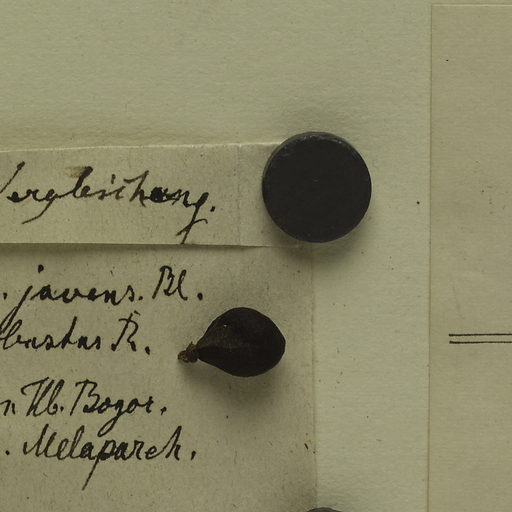 Vergleichung.
. javens. Bl.
bustus R.
n Hb. Bogor.
. Melaparek.